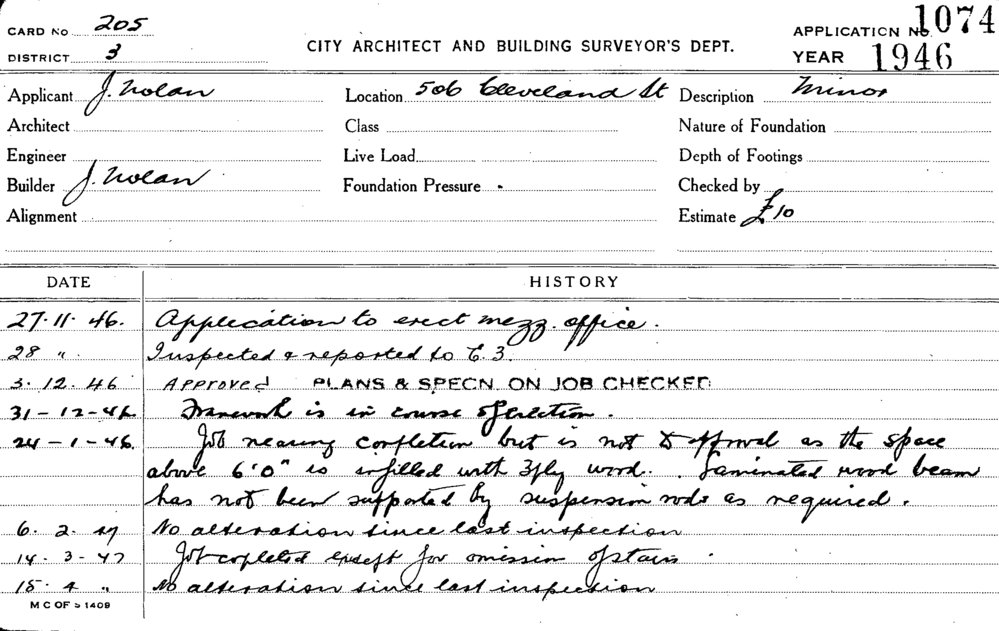 CARD No 205
DISTRICT 3
CITY ARCHITECT AND BUILDING SURVEYOR'S DEPT.
APPLICATION No. 1074
YEAR 1946
Applicant J. Nolan
Location 506 Cleveland St
Description Minor
Architect
Class
Nature of Foundation
Engineer
Live Load
Depth of Footings
Builder J. Nolan
Foundation Pressure
Checked by
Alignment
Estimate £10
DATE HISTORY
27.11.46. Application to erect mezz. office.
28 " Inspected & reported to C.3.
3.12.46 Approved PLANS & SPECN. ON JOB CHECKED
31-12-46 Framework is in course of erection.
24-1-46 Job nearing completion but is not to approval as the space
above 6'0" is infilled with 3ply wood. Laminated wood beam
has not been supported by suspension rods as required.
6. 2. 47 No alteration since last inspection
14. 3-47 Job copleted except for omission of stairs.
15. 4 " No alteration since last inspection
M C OF S 1409